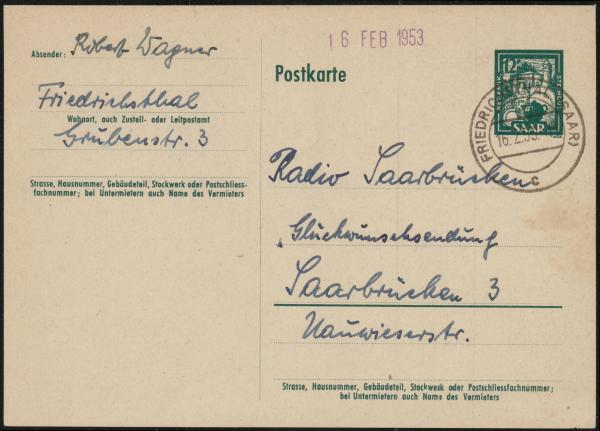 16 FEB 1953
Absender: Robert Wagner
Friedrichsthal
Wohnort, auch Zustell- oder Leitpostamt
Grubenstr. 3
Strasse, Hausnummer, Gebäudeteil, Stockwerk oder Postschliess-
fachnummer; bei Untermietern auch Name des Vermieters
Postkarte
12F
SAAR
(SAAR)
16.2.53.
c
Radio Saarbrücken
"Glückwunschsendung
Saarbrücken 3
Nauwieserstr.
Strasse, Hausnummer, Gebäudeteil, Stockwerk oder Postschliessfachnummer;
bei Untermietern auch Name des Vermieters